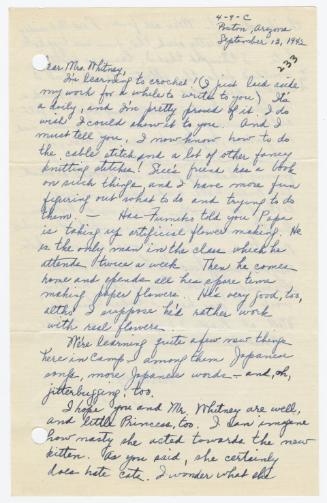 4-9-C
Poston, Arizona
September 13, 1942
233
Dear Mrs. Whitney,
I'm learning to crochet! (I just laid aside
my work for a while to write to you) It's
a doily, and I'm pretty proud of it. I do
wish I could show it to you. And I
must tell you, I now know how to do
the cable stitch and a lot of other fancy
knitting stitches! Sis's friend has a book
on such things, and I have more fun
figuring out what to do and trying to do
them. — Has Fumiko told you Papa
is taking up artificial flower making. He
is the only man in the class which he
attends twice a week. Then he comes
home and spends all his spare time
making paper flowers. He's very good, too,
altho I suppose he'd rather work
with real flowers.
We're learning quite a few new things
here in camp - among them Japanese
songs, more Japanese words - and, oh,
jitterbugging, too.
I hope you and Mr. Whitney are well,
and little Princess, too. I can imagine
how nasty she acted towards the new
kitten. As you said, she certainly
does hate cats. I wonder what she